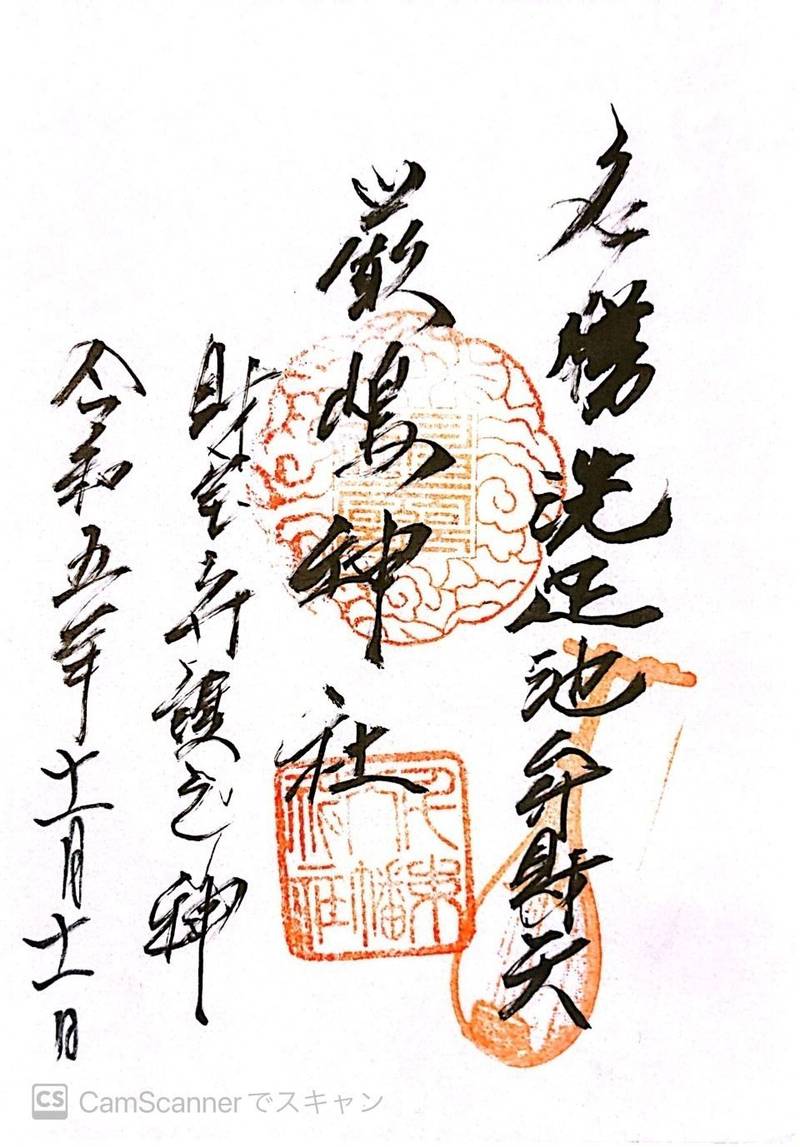 名勝洗足池弁財天
厳島神社
財宝弁護之神
令和五年十一月十一日
CS CamScannerでスキャン